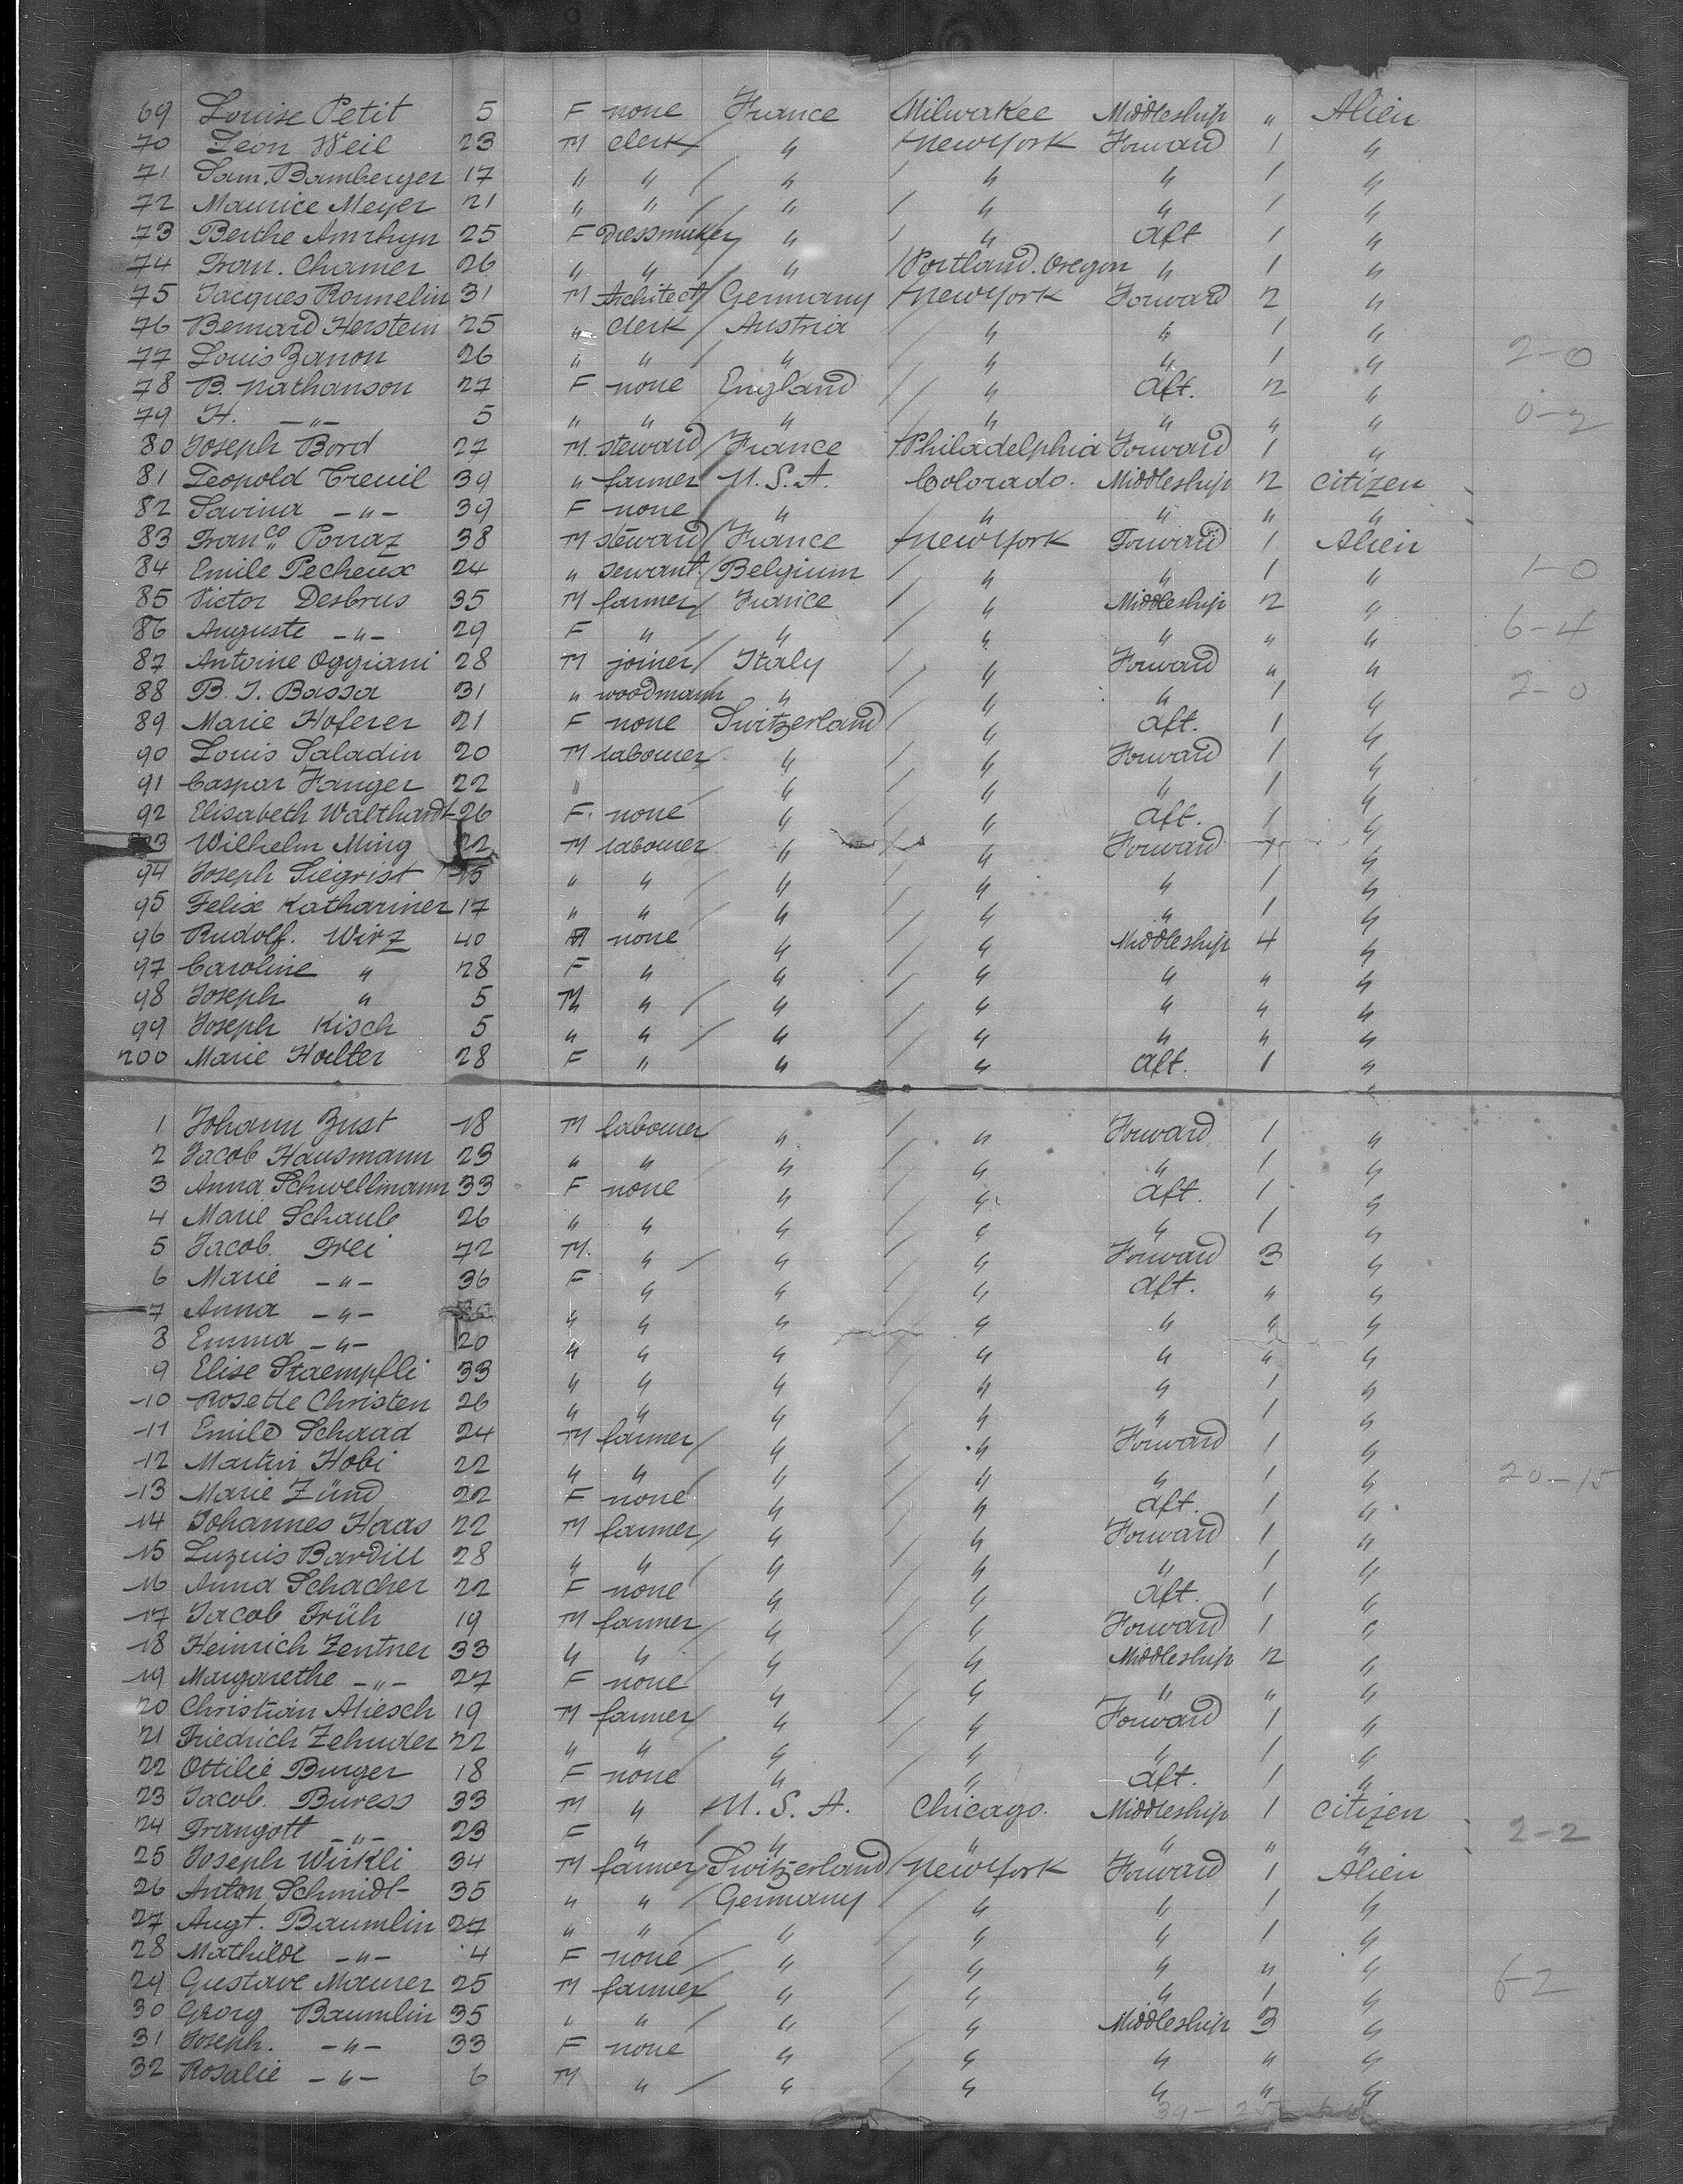 69 Louise Petit 5 F none France Milwakee Middleship " Alien
70 Leon Weil 23 M clerk " New York Forward 1 "
71 Sam. Bamberger 17 " " " " " 1 "
72 Maurice Meyer 21 " " " " " 1 "
73 Berthe Amrhyn 25 F Dressmaker " " Aft 1 "
74 Fran. Chamer 26 " " " Portland. Oregon " 1 "
75 Jacques Rommelin 31 M Architect Germany New York Forward 2 "
76 Bernard Herstein 25 " Clerk Austria " " 1 "
77 Louis Zanon 26 " " " " " 1 " 2-0
78 B. Nathanson 27 F none England " Aft. 2 "
79 H. -"- 5 " " " " " " " 0-2
80 Joseph Bord 27 M. steward France Philadelphia Forward 1 "
81 Leopold Treuil 39 " farmer U.S.A. Colorado. Middleship 2 citizen
82 Savina -"- 39 F none " " " " "
83 Franco Porraz 38 M steward France New York Forward 1 Alien
84 Emile Pecheux 24 " servant. Belgium " " 1 " 1-0
85 Victor Desbrus 35 M farmer France " Middleship 2 "
86 Auguste -"- 29 F " " " " " " 6-4
87 Antoine Oggiani 28 M joiner Italy " Forward " "
88 B. J. Bassa 31 " woodmann " " " 1 " 2-0
89 Marie Hoferer 21 F none Switzerland " Aft. 1 "
90 Louis Saladin 20 M labourer " " Forward 1 "
91 Caspar Fanger 22 " " " " 1 "
92 Elisabeth Walthardt 26 F. none " " Aft. 1 "
93 Wilhelm Ming 22 M labourer " " Forward 1 "
94 Joseph Siegrist " " " " " 1 "
95 Felix Kathariner 17 " " " " " 1 "
96 Rudolf. Wirz 40 M none " " Middleship 4 "
97 Caroline " 28 F " " " " " "
98 Joseph " 5 M " " " " " "
99 Joseph Kisch 5 " " " " " " "
200 Marie Halter 28 F " " " Aft. 1 "
1 Johann Zust 18 M labourer " " Forward 1 "
2 Jacob Hausmann 23 " " " " " 1 "
3 Anna Schwellmann 33 F none " " Aft. 1 "
4 Marie Schaub 26 " " " " " 1 "
5 Jacob. Frei 72 M. " " " Forward 3 "
6 Marie -"- 36 F " " " Aft. " "
7 Anna -"- " " " " " " "
8 Emma -"- 20 " " " " " " "
9 Elise Staempfli 33 " " " " " 1 "
10 Rosette Christen 26 " " " " " 1 "
11 Emile Schaad 24 M farmer " " Forward 1 "
12 Martin Hobi 22 " " " " " 1 " 20-15
13 Marie Zünd 22 F none " " Aft. 1 "
14 Johannes Haas 22 M farmer " " Forward 1 "
15 Luzuis Bardill 28 " " " " " 1 "
16 Anna Schacher 22 F none " " Aft. 1 "
17 Jacob Früh 19 M farmer " " Forward 1 "
18 Heinrich Zentner 33 " " " " Middleship 2 "
19 Margarethe -"- 27 F none " " " " "
20 Christian Aliesch 19 M farmer " " Forward 1 "
21 Friedrich Zehnder 22 " " " " " 1 "
22 Ottilie Burger 18 F none " " Aft. 1 "
23 Jacob. Buress 33 M " U.S.A. Chicago. Middleship 1 citizen
24 Frangott -"- 23 F " " " " " " 2-2
25 Joseph Würkli 34 M farmer Switzerland New York Forward 1 Alien
26 Anton Schmidt 35 " " Germany " " 1 "
27 Augt. Baumlin 27 " " " " " 1 "
28 Mathilde -"- 4 F none " " " " "
29 Gustave Maurer 25 M farmer " " " 1 " 6-2
30 Georg Baumlin 35 " " " " Middleship 3 "
31 Joseph. -"- 33 F none " " " " "
32 Rosalie -"- 6 M " " " " " "